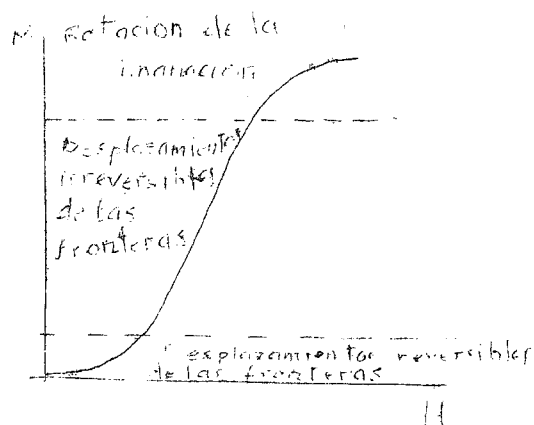 M Rotacion de la
imanacion
Desplazamientos
irreversibles
de las
fronteras
Desplazamientos reversibles
de las fronteras
H